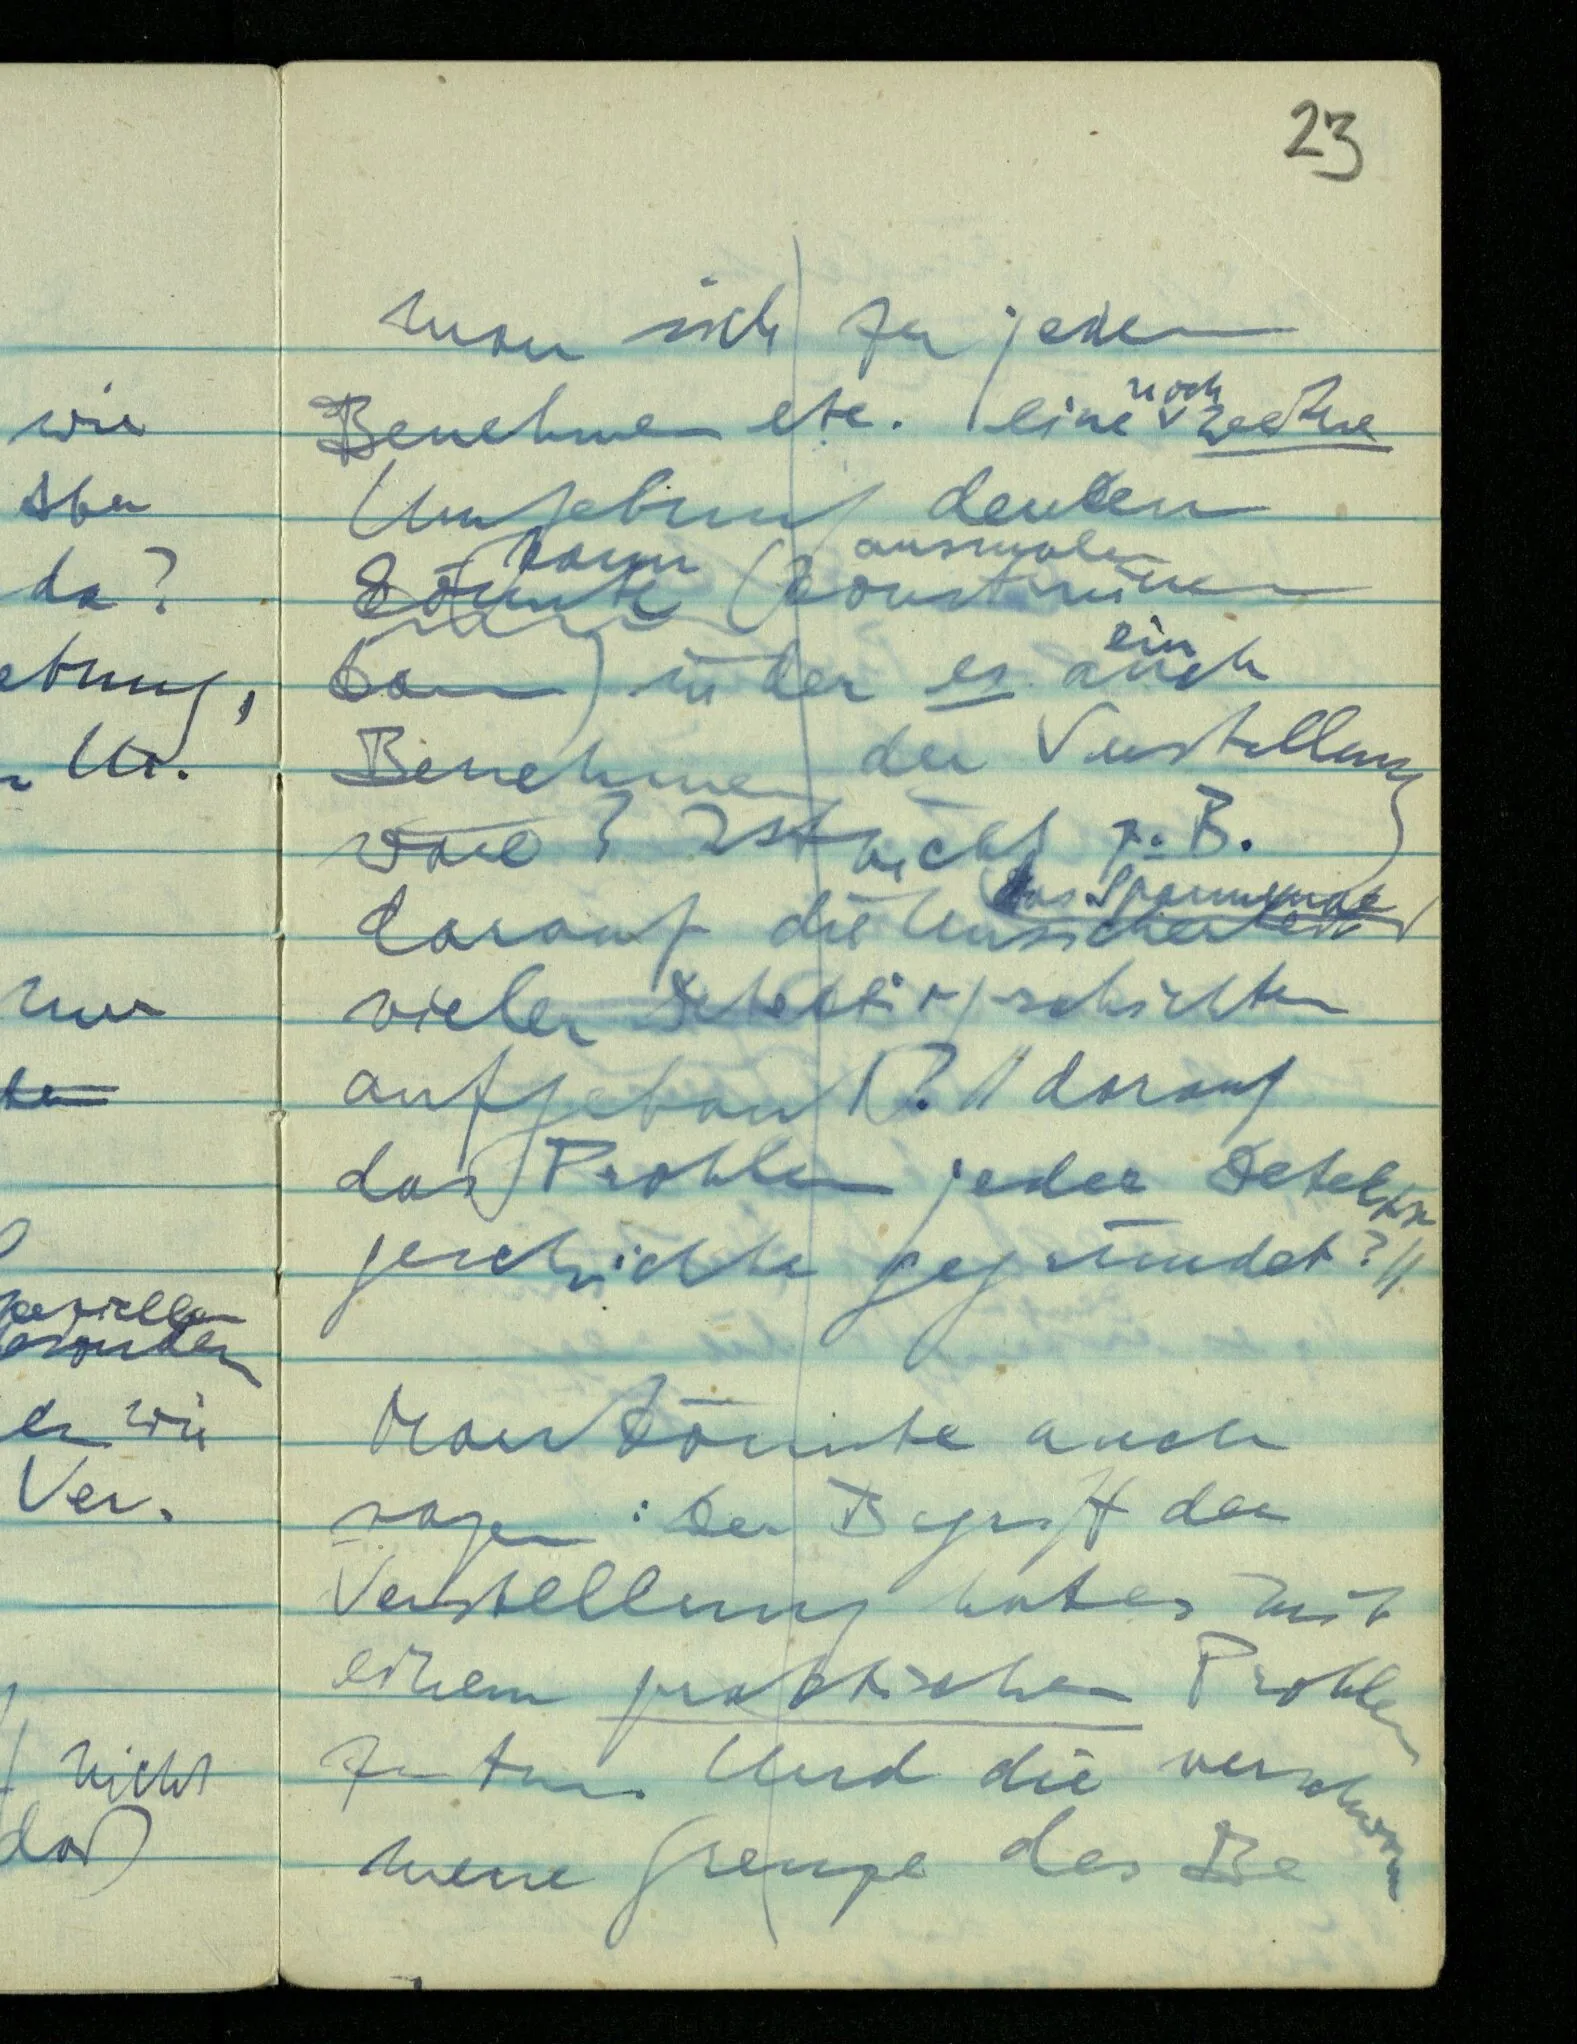 23
man sich zu jedem
Benehmen etc. eine noch weitere
Umgebung denken
könnte kann (konstruieren ausmalen
kann) in der es auch ein
Benehmen der Verstellung
wäre? Ist nicht z.B.
darauf die Unsicherheit das Spannende
vieler Detektivgeschichten
aufgebaut? // darauf
das Problem jeder Detektiv
geschichte gegründet? //
Man könnte auch
sagen: Der Begriff der
Verstellung hat es mit
einem praktischen Problem
zu tun. Und die verschwom
mene Grenze des Be
wie
Aber
da?
ebung,
Ver.
nicht
daß